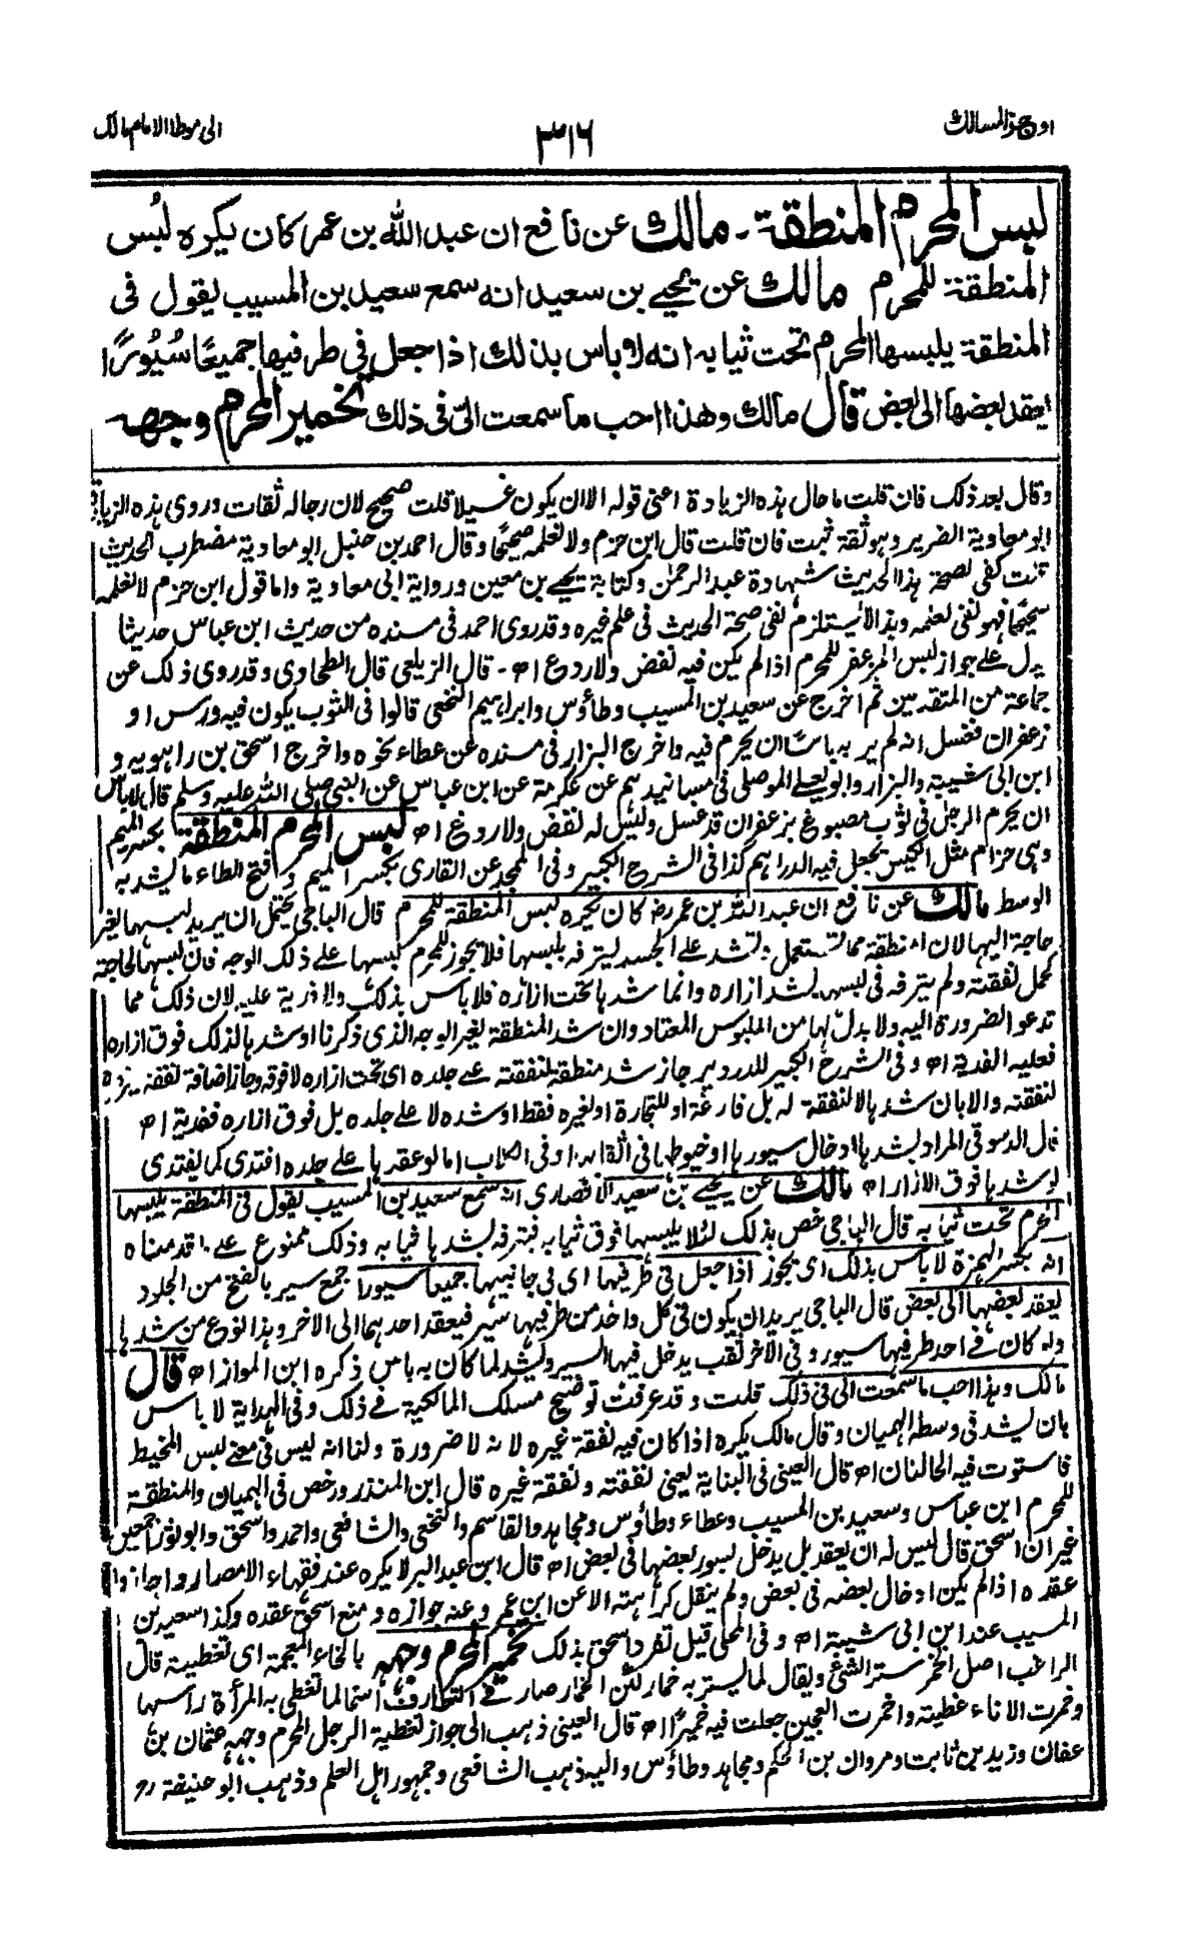 اوجز المسالك
٣١٦
الى موطا الامام مالك
لبس المحرم المنطقة ۔ مالك عن نافع ان عبد الله بن عمر كان يكره لبس
المنطقة للمحرم مالك عن يحيے بن سعيد انه سمع سعيد بن المسيب يقول فى
المنطقة يلبسها المحرم تحت ثيابه انه لا باس بذلك اذا جعل فى طرفيها جميعًا سُيُورًا
يعقد بعضها الى بعض قال مالك وهذا احب ما سمعت الىّ فى ذلك تخمير المحرم وجهه
وقال بعد ذلك فان قلت ما حال هذه الزيادة اعنى قوله الا ان يكون غسيلا قلت صحيح لان رجاله ثقات وروى هذه الزيادة
ابو معاوية الضرير وهو ثقة ثبت فان قلت قال ابن حزم ولا نعلمه صحيحًا وقال احمد بن حنبل ابو معاوية مضطرب الحديث
قلت كفى لصحة هذا الحديث شهادة عبد الرحمن وكتابة يحيے بن معين ورواية ابى معاوية واما قول ابن حزم لا نعلمه
صحيحًا فهو نفى لعلمه وهذا لا يستلزم نفى صحة الحديث فى علم غيره وقد روى احمد فى مسنده من حديث ابن عباس حديثا
يدل علے جواز لبس المزعفر للمحرم اذا لم يكن فيه نفض ولا ردع اھ ۔ قال الزيلعى قال الطحاوى وقد روى ذلك عن
جماعة من المتقدمين ثم اخرج عن سعيد بن المسيب وطاؤس وابراهيم النخعى قالوا فى الثوب يكون فيه ورس او
زعفران فغسل انه لم ير به باسًا ان يحرم فيه واخرج البزار فى مسنده عن عطاء نحوه واخرج اسحق بن راهويه و
ابن ابى شيبة والبزار وابو يعلے الموصلى فى مسانيدهم عن عكرمة عن ابن عباس عن النبى صلى الله عليه وسلم قال لا باس
ان يحرم الرجل فى ثوب مصبوغ بزعفران قد غسل وليس له نفض ولا ردغ اھ لبس المحرم المنطقة بكسر الميم
وهى حزام مثل الكيس يجعل فيه الدراهم كذا فى الشرح الكبير وفى المجمد عن القارى بكسر الميم وفتح الطاء ما يشد به
الوسط مالك عن نافع ان عبد الله بن عمر رض كان يكره لبس المنطقة للمحرم قال الباجى يحتمل ان يريد لبسها لغير
حاجة اليها لان المنطقة مما تستعمل وتشد علے الجسد ليترفه بلبسها فلا يجوز للمحرم لبسها علے ذلك الوجه فان لبسها لحاجته
لحمل نفقته ولم يترفه فى لبسها بشد ازاره وانما شدها تحت ازاره فلا باس بذلك ولا فدية عليه لان ذلك مما
تدعو الضرورة اليه ولا بدل لها من الملبوس المعتاد وان شد المنطقة لغير الوجه الذى ذكرنا او شدها لذلك فوق ازاره
فعليه الفدية اھ وفى الشرح الكبير للدردير جاز شد منطقة لنفقته علے جلده اى تحت ازاره لا فوقه وجاز اضافة نفقة غيره
لنفقته والا بان شدها لا لنفقة له بل فارغة او للتجارة او لغيره فقط او شده لا علے جلده بل فوق ازاره ففدية اھ
قال الدسوقى المراد بشدها ادخال سيورها او خيوطها فى اثقابها او فى ابزيمها اما لو عقدها علے جلده افتدى كما يفتدى
لو شدها فوق الازار اھ مالك عن يحيے بن سعيد الانصارى انه سمع سعيد بن المسيب يقول فى المنطقة يلبسها
المحرم تحت ثيابه قال الباجى خص بذلك لئلا يلبسها فوق ثيابه فيترفه بشدها ثيابه وذلك ممنوع علے ما قدمناه
انه بكسر الهمزة لا باس بذلك اى يجوز اذا جعل فى طرفيها اى فى جانبيها جميعا سيورا جمع سير بالفتح من الجلود
يعقد بعضها الى بعض قال الباجى يريد ان يكون فى كل واحد من طرفيها سير فيعقد احدهما الى الاخر وهذا النوع من شدها
ولو كان فے احد طرفيها سيور وفى الاخر ثقب يدخل فيها السير ويشد لما كان به باس ذكره ابن المواز اھ قال
مالك وهذا احب ما سمعت الى فى ذلك قلت وقد عرفت توضيح مسلك المالكية فے ذلك وفى الهداية لا باس
بان يشد فى وسطه الهميان وقال مالك يكره اذا كان فيه نفقة غيره لانه لا ضرورة ولنا انه ليس فى معنے لبس المخيط
فاستوت فيه الحالتان اھ قال العينى فى البناية يعنى نفقته ونفقة غيره قال ابن المنذر ورخص فى الهميان والمنطقة
للمحرم ابن عباس وسعيد بن المسيب وعطاء وطاؤس ومجاهد والقاسم والنخعى والشافعى واحمد واسحق وابو ثور اجمعين
غير ان اسحق قال ليس له ان يعقد بل يدخل لسيور بعضها فى بعض اھ قال ابن عبد البر لا يكره عند فقهاء الامصار واجازوا
عقده اذا لم يكن ادخال بعضه فى بعض ولم ينقل كراهته الا عن ابن عمر وعنه جوازه ومنع اسحق عقده وكذا سعيد بن
المسيب عند ابن ابى شيبة اھ وفى المحلى قيل تفرد اسحق بذلك تخمير المحرم وجهه بالخاء المعجمة اى تغطيته قال
الراغب اصل الخمر ستر الشئ ويقال لما يستر به خمار لكن الخمار صار فے التعارف اسمًا لما تغطى به المرأة راسها
وخمرت الاناء غطيته واخمرت العجين جعلت فيه خميرًا اھ قال العينى ذهب الى جواز تغطية الرجل المحرم وجهه عثمان بن
عفان وزيد بن ثابت ومروان بن الحكم ومجاهد وطاؤس واليه ذهب الشافعى وجمهور اهل العلم وذهب ابو حنيفة رح